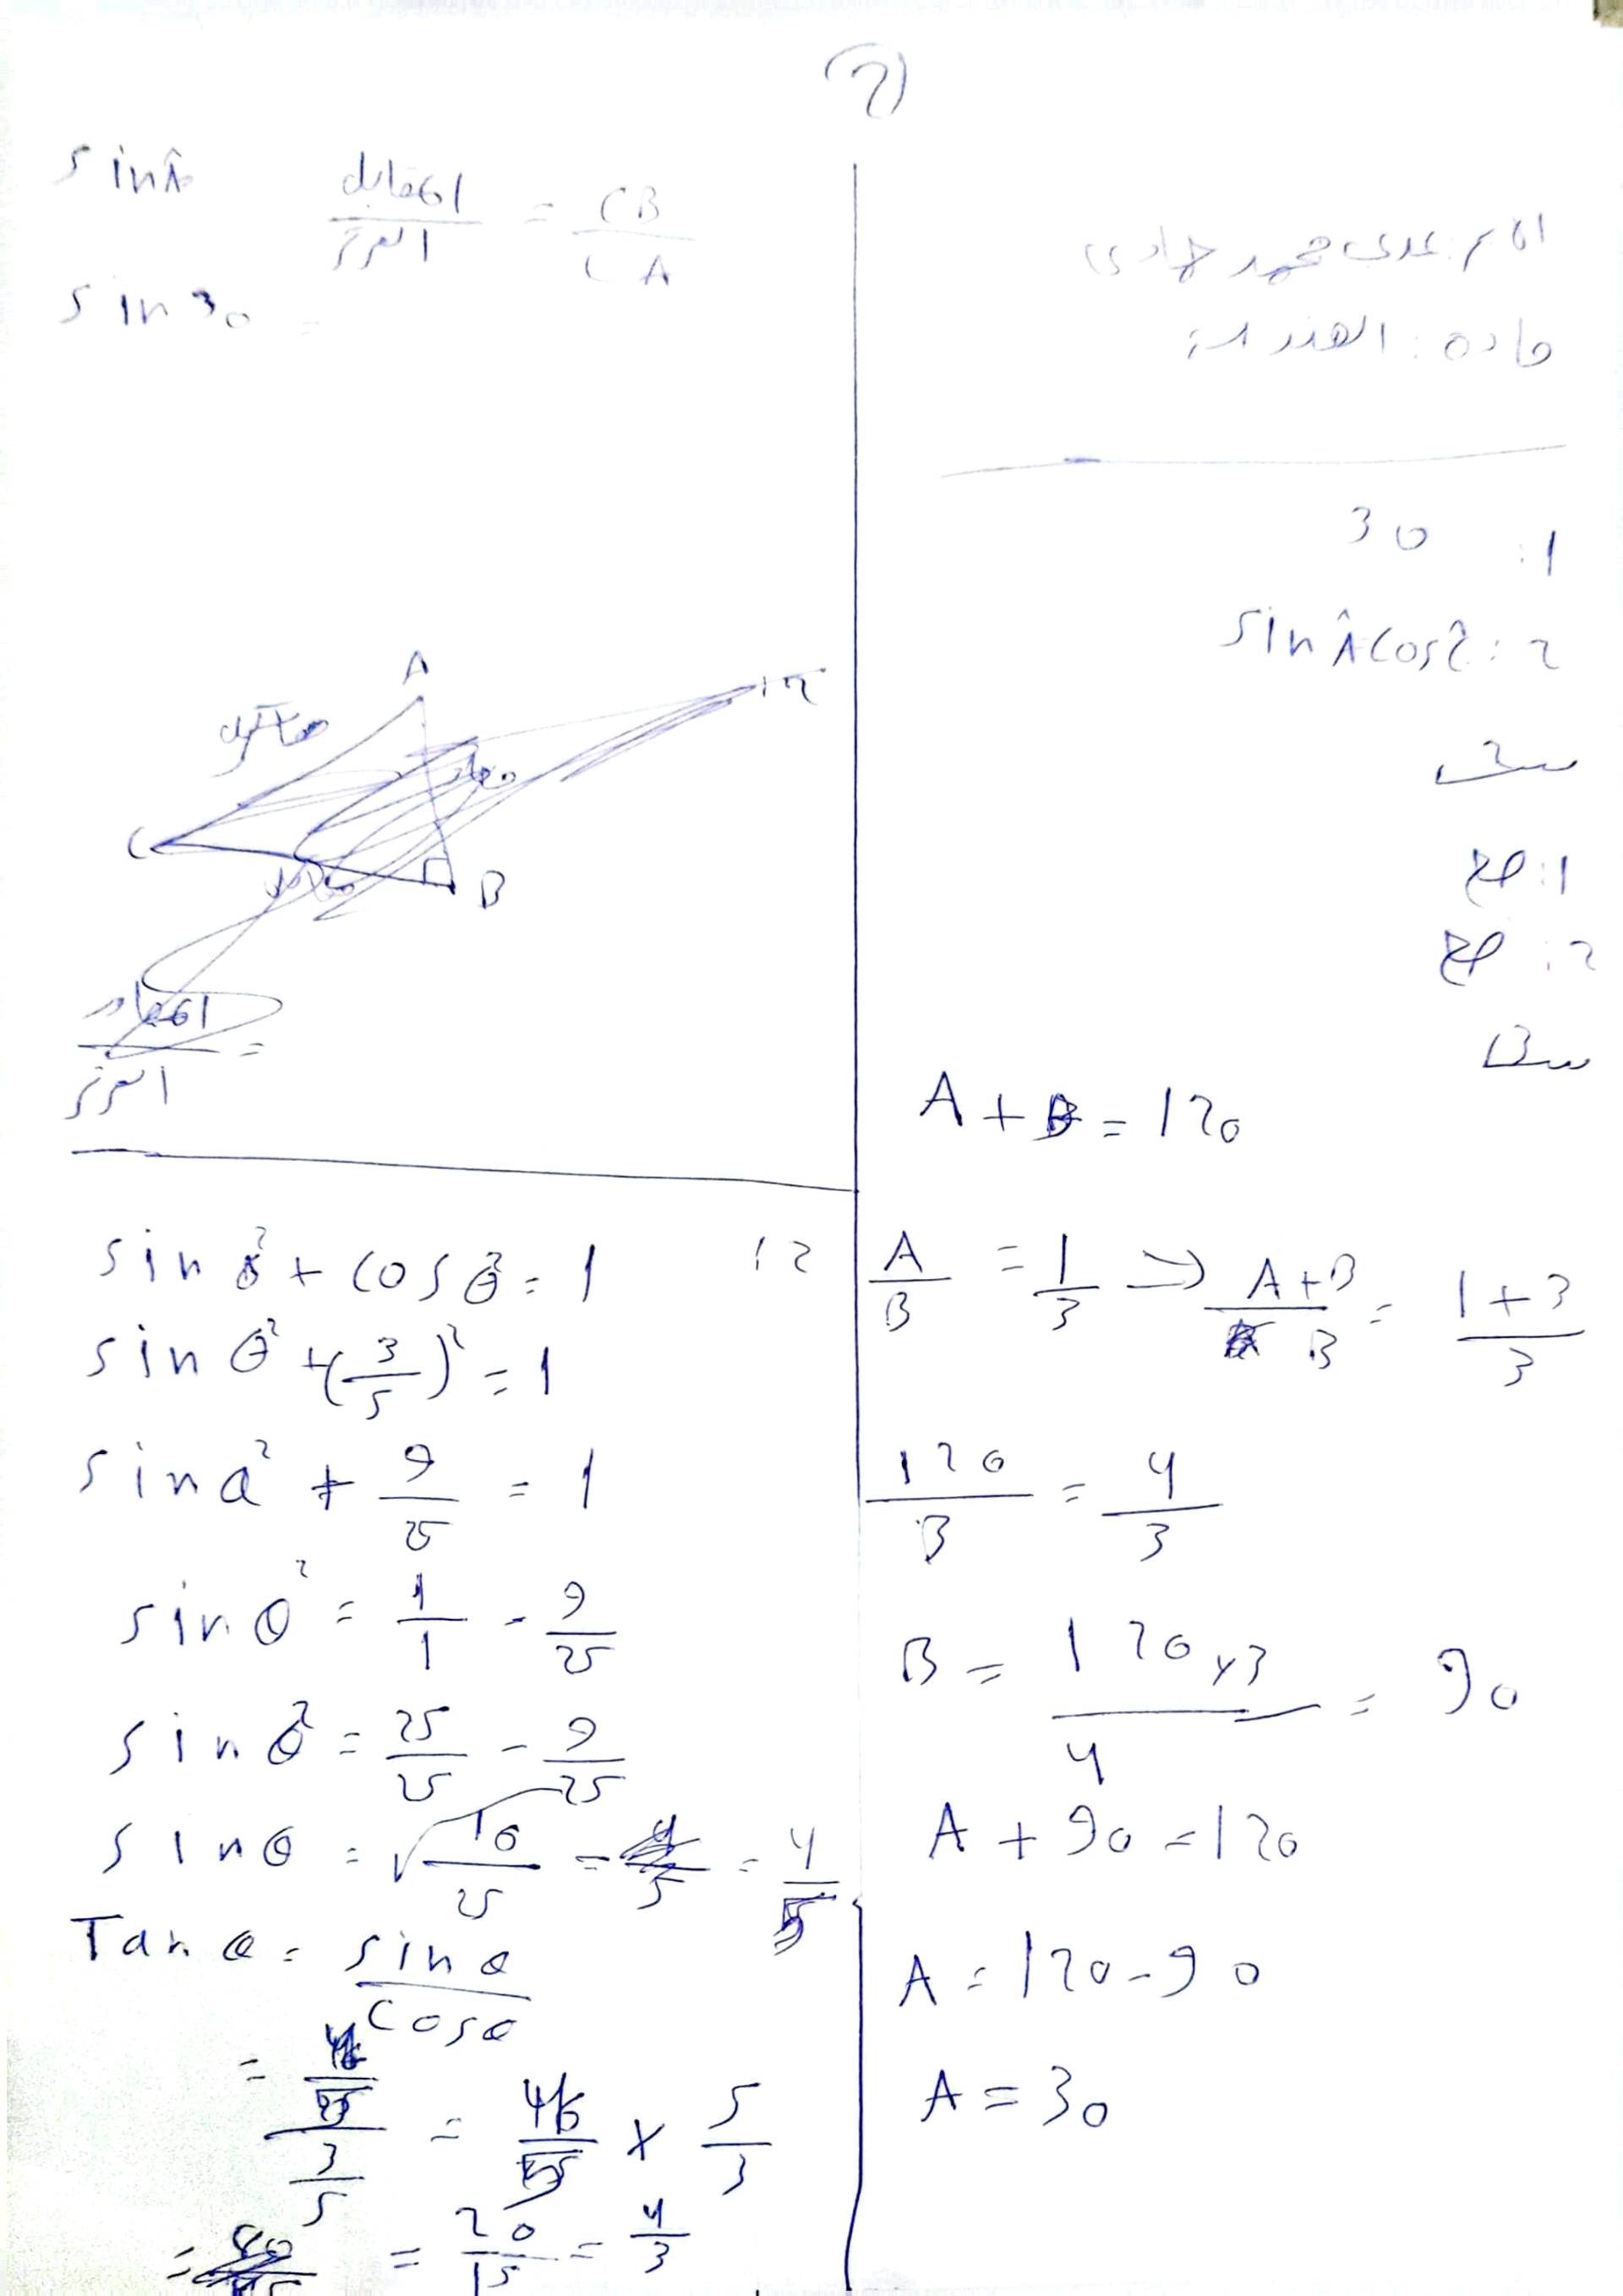 (2)
الاسم: عدي محمد هادي
مادة: الهندسة
1: 30
2: sin Â cos Ĉ
س2
1: صح
2: صح
س3
A + B = 120
A/B = 1/3 ⇒ A+B/B = 1+3/3
120/B = 4/3
B = 120×3/4 = 90
A + 90 = 120
A = 120 - 90
A = 30
sin Â المقابل/الوتر = CB/CA
sin 30 =
A
C
B
المقابل/الوتر =
2:
sin θ² + cos θ² = 1
sin θ² + (3/5)² = 1
sin θ² + 9/25 = 1
sin θ² = 1/1 - 9/25
sin θ² = 25/25 - 9/25
sin θ = √16/25 = 4/5
Tan θ = sin θ/cos θ
= 4/5 / 3/5 = 4/5 × 5/3
= 20/15 = 4/3